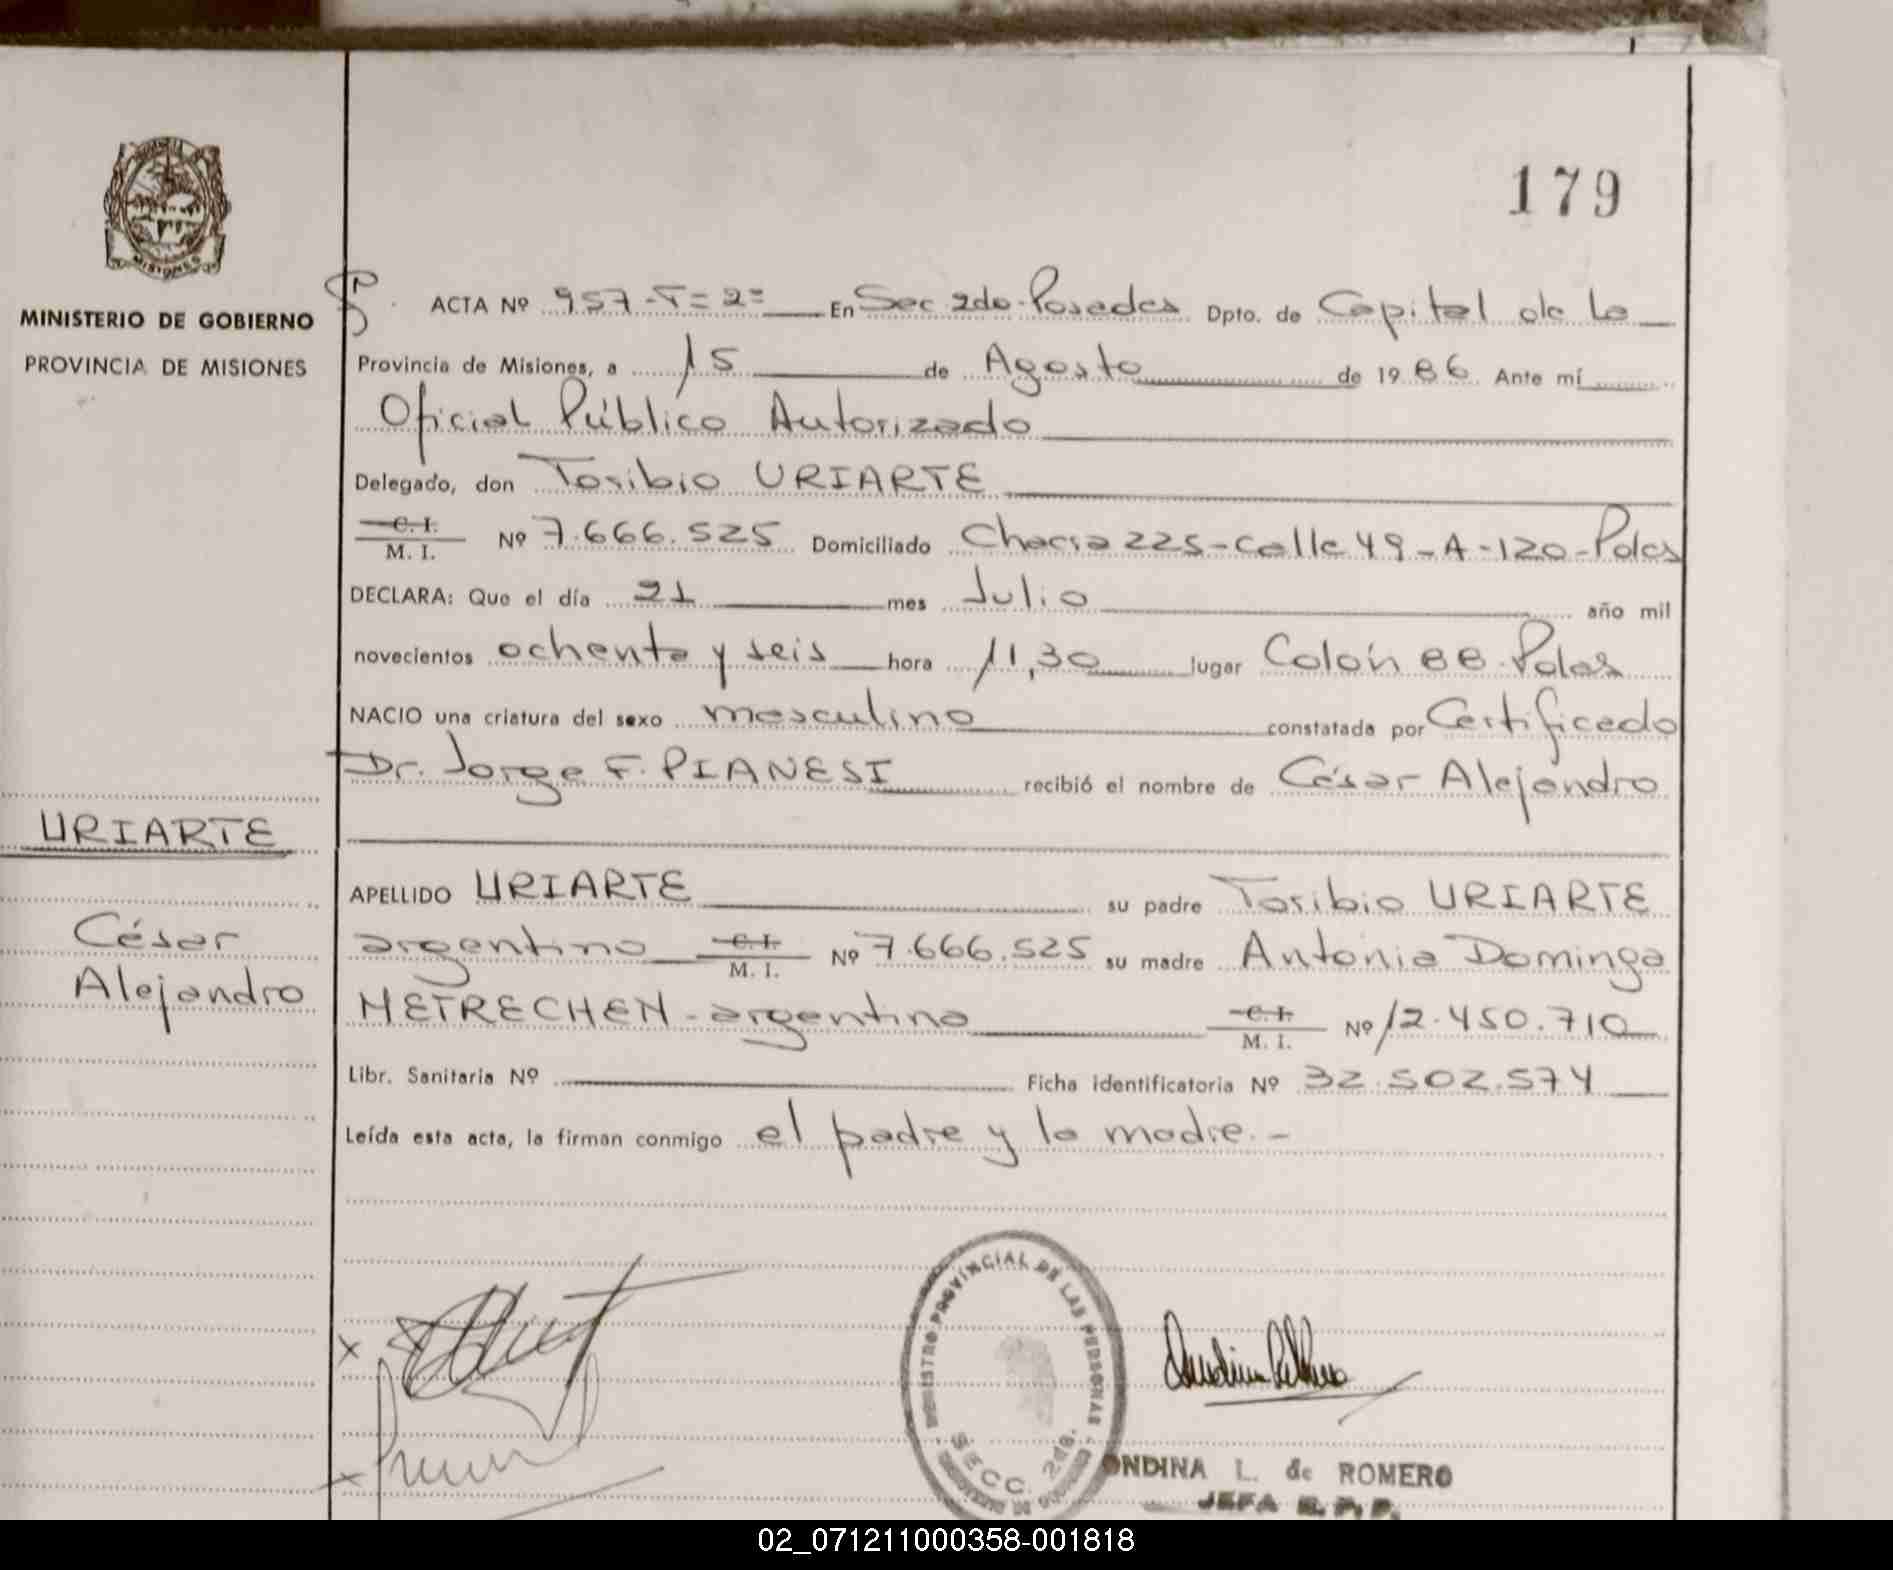 179
MISIONES
MINISTERIO DE GOBIERNO
PROVINCIA DE MISIONES
URIARTE
César
Alejandro
ACTA Nº 957-T=2= En Sec 2do. Posadas Dpto. de Capital de la
Provincia de Misiones, a 15 de Agosto de 1986. Ante mí
Oficial Público Autorizado
Delegado, don Toribio URIARTE
C. I.
M. I. Nº 7.666.525 Domiciliado Chacra 225-calle 49-A-120-Pdas
DECLARA: Que el día 21 mes Julio año mil
novecientos ochenta y seis hora 11,30 lugar Colón BB. Pdas
NACIO una criatura del sexo masculino constatada por Certificado
Dr. Jorge F. PIANESI recibió el nombre de César Alejandro
APELLIDO URIARTE su padre Toribio URIARTE
argentino C. I.
M. I. Nº 7.666.525 su madre Antonia Dominga
METRECHEN - argentina C. I.
M. I. Nº 12.450.710
Libr. Sanitaria Nº Ficha identificatoria Nº 32.502.574
Leída esta acta, la firman conmigo el padre y la madre.-
REGISTRO PROVINCIAL DE LAS PERSONAS
SECC. 2da.
ONDINA L. de ROMERO
JEFA R. P. P.
02_071211000358-001818